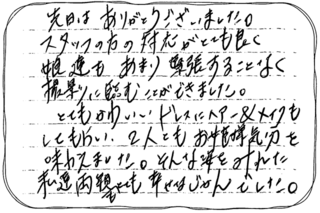 先日は ありがとうございました。
スタッフの方の 対応がとても良く
娘達も あまり 緊張することなく
撮影に臨むことができました。
とてもかわいい ドレスにヘアー&メイクも
してもらい、2人とも お姫様気分を
味わえました。そんな姿をみれた
私達両親もとても 幸せなじかんでした。